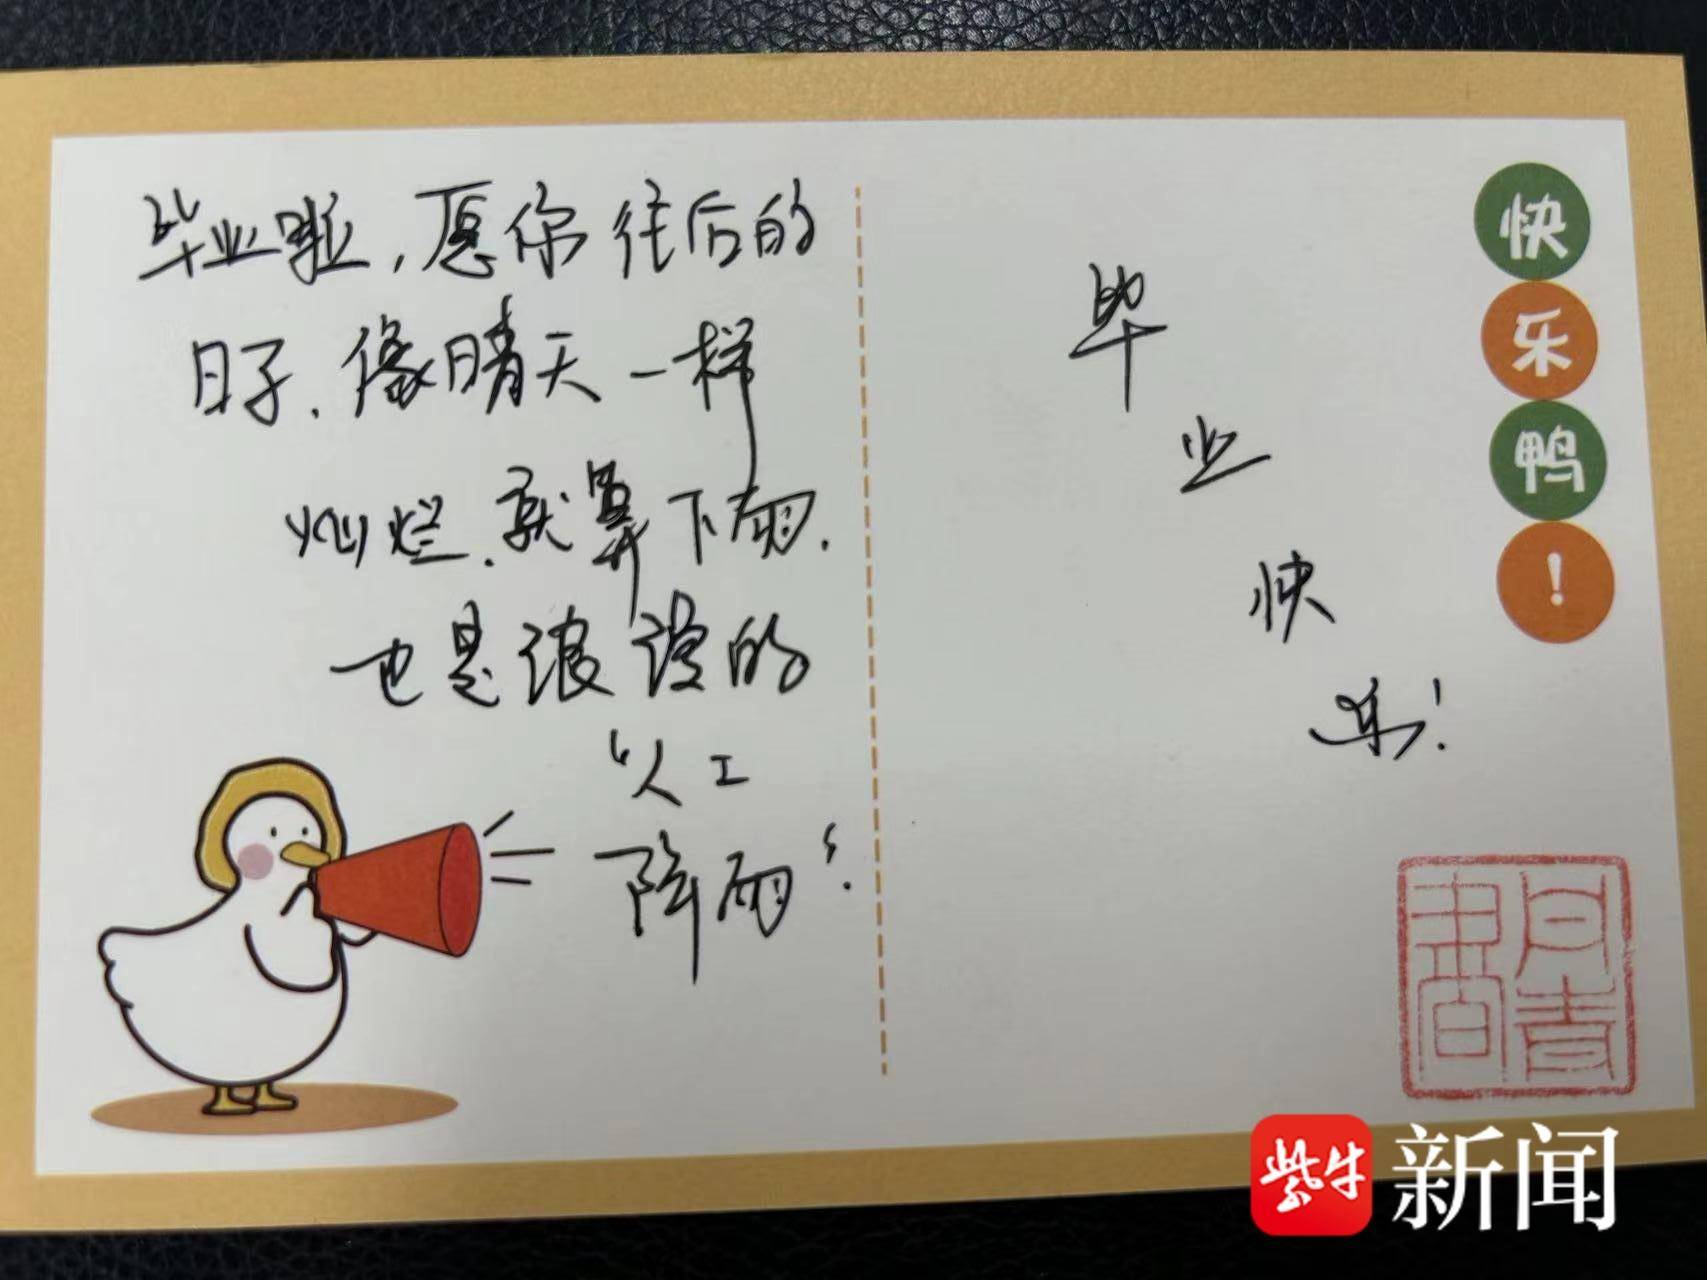 毕业啦,愿你往后的
日子、像晴天一样
灿烂.就算下雨.
也是浪漫的
“人工
降雨”.
毕
业
快
乐!
快
乐
鸭
!
紫牛新闻